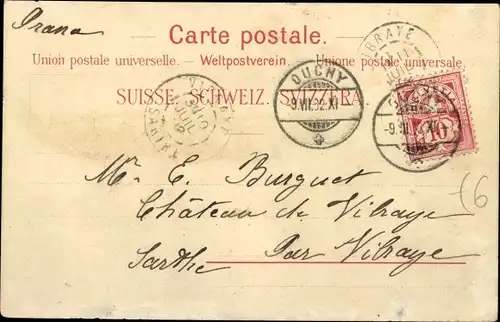 Prana
Carte postale.
Union postale universelle. — Weltpostverein. — Unione postale universale
SUISSE. SCHWEIZ. SVIZZERA.
OUCHY
-9.VII.92.XI
10
M. E. Burguet
Château de Vibraye
Par Vibraye
Sarthe
6